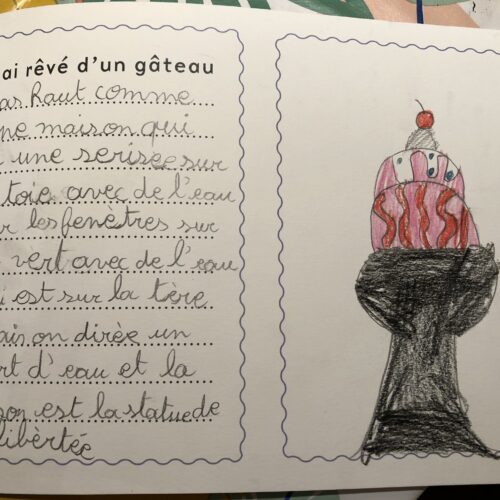 ai rêvé d'un gâteau
as haut comme
ne maison qui
une serisee sur
toie avec de l'eau
r les fenètres sur
vert avec de l'eau
i est sur la tère
ais on dirèe un
rt d'eau et la
son est la statue de
libèrtée